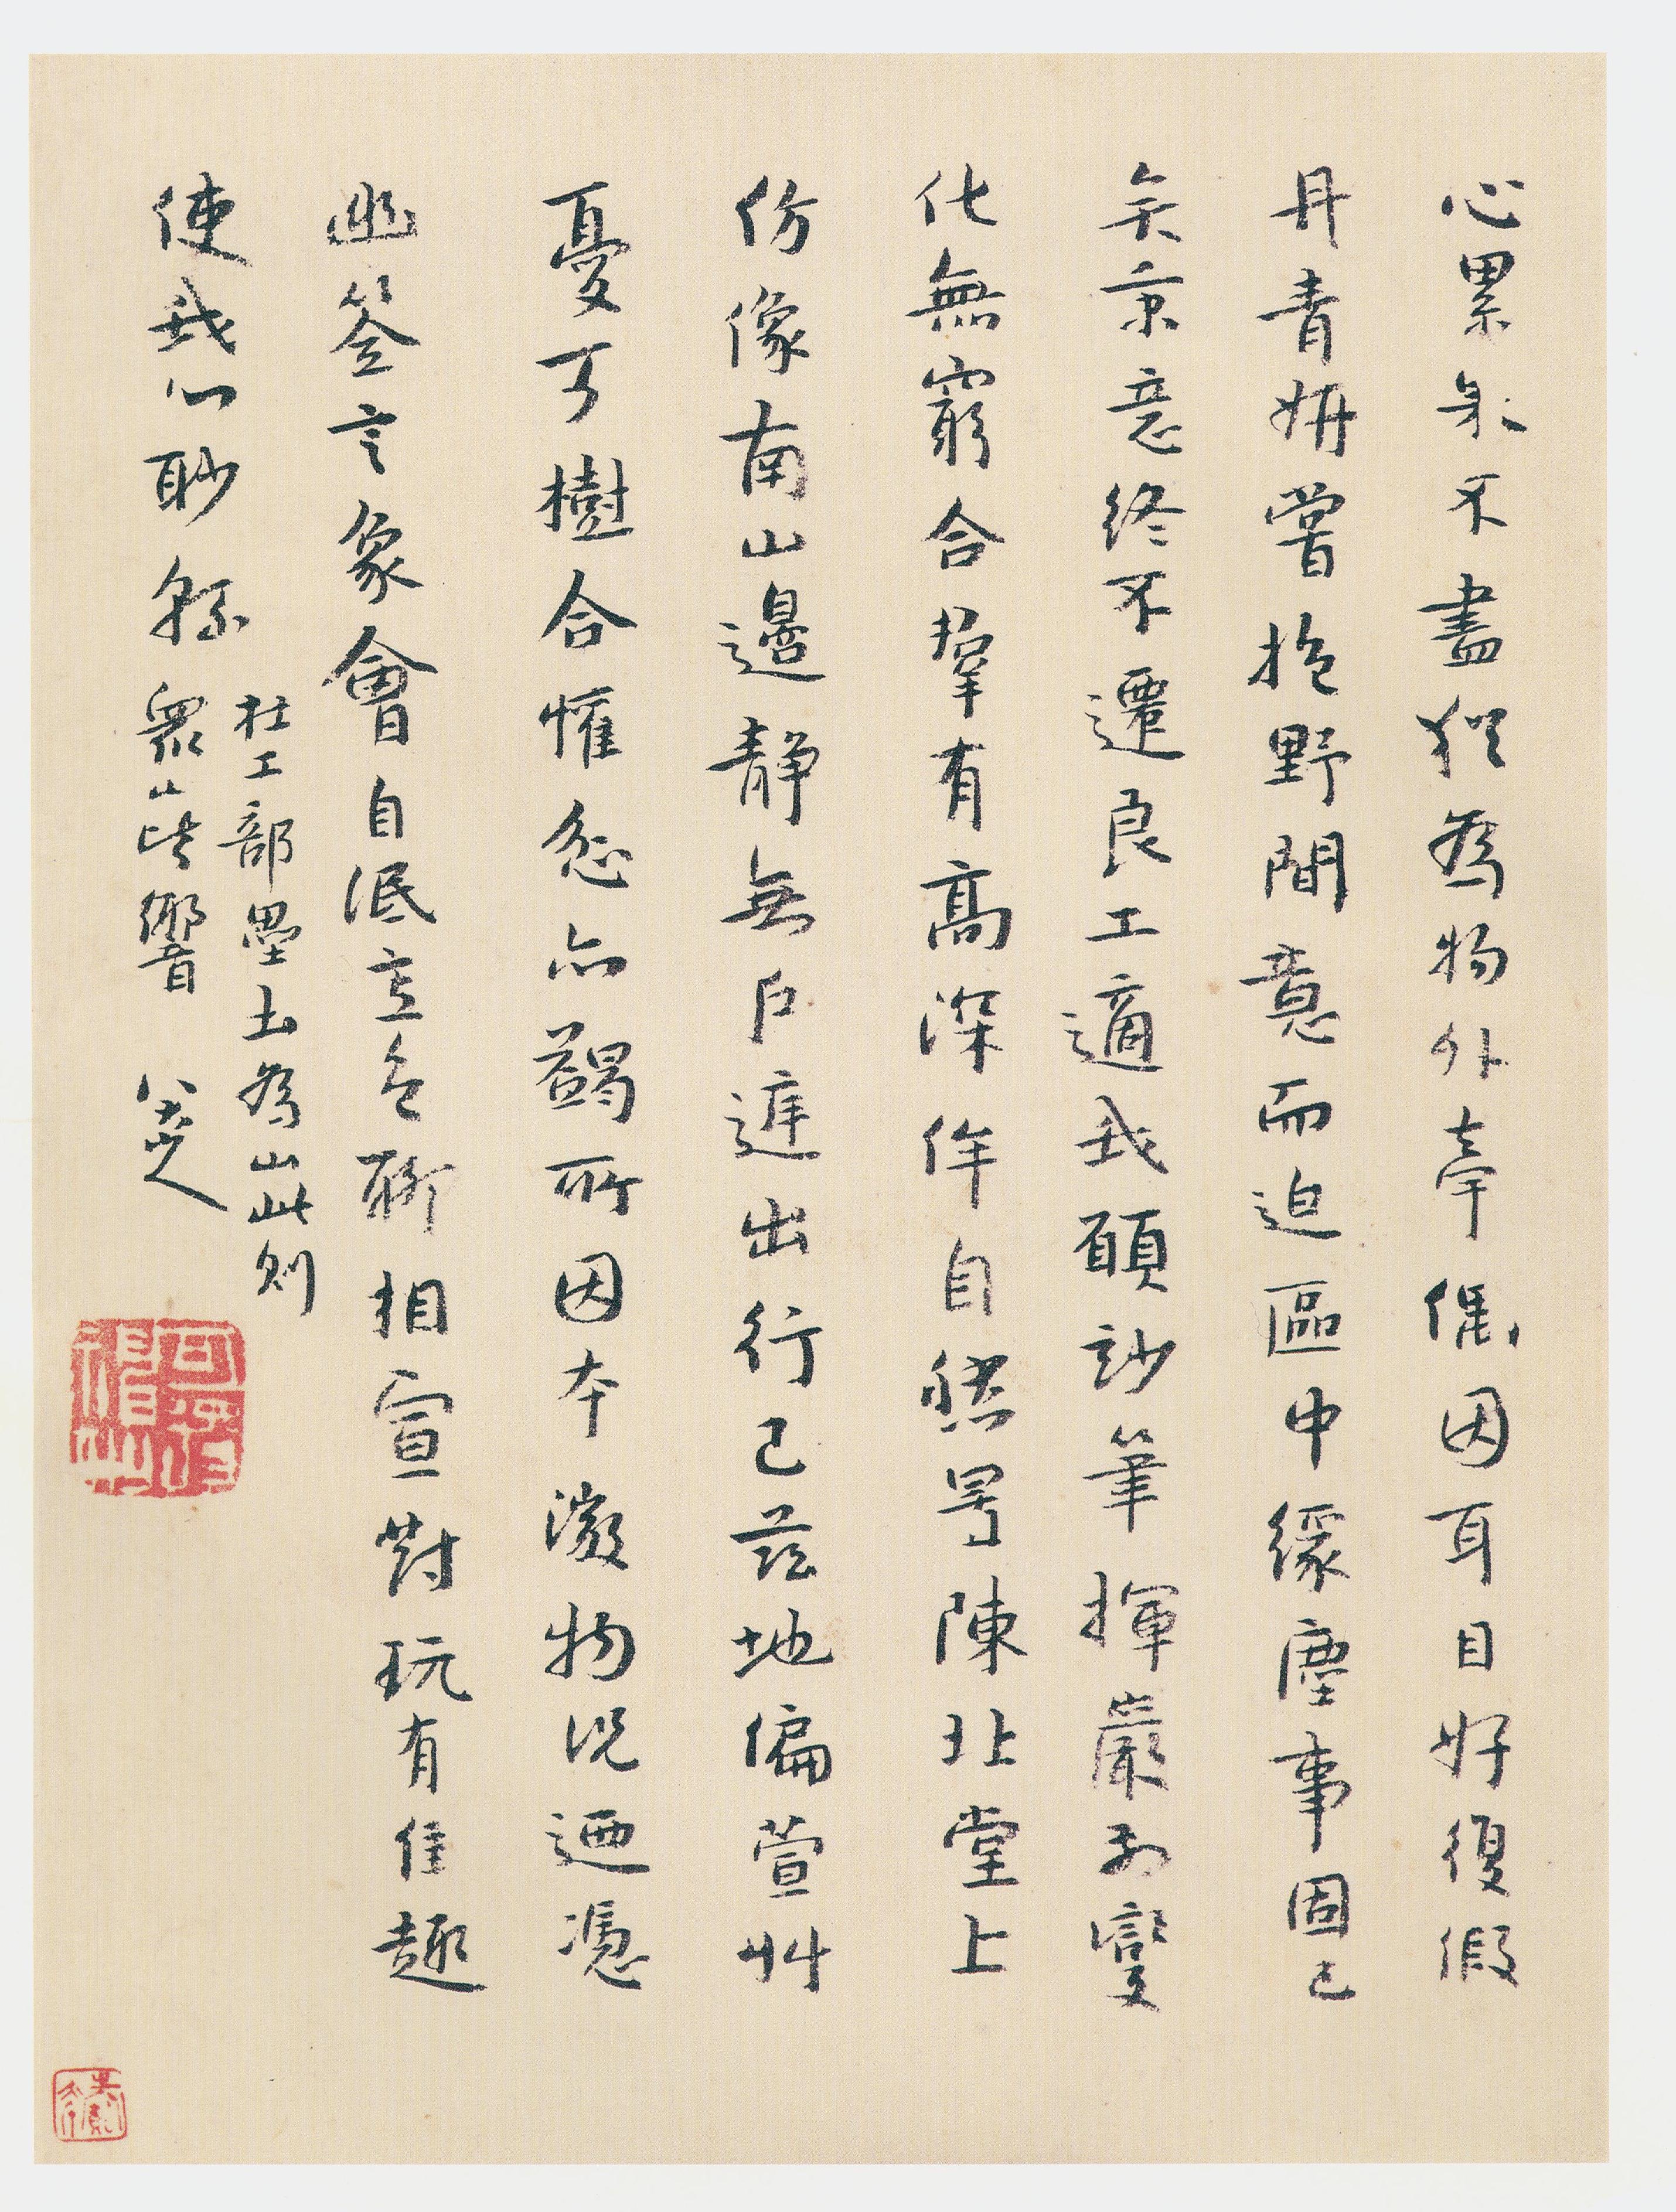 心累猶不盡猶為物外牽偶因耳目好復假
丹青妍嘗抱野間意而迫區中緣塵事固已
矣秉意終不遷良工適我願妙筆揮巖泉變
化無窮合群有高深侔自然置陳北堂上
仿像南山邊靜無戶遮出行已茲地偏萱艸
憂可樹合懽忿亦蠲所因本微物況迺憑
幽筌言象會自泯意色聊相宣對玩有佳趣
使我心眇綿
杜工部壘土為山此則
眾山皆響
八大山人